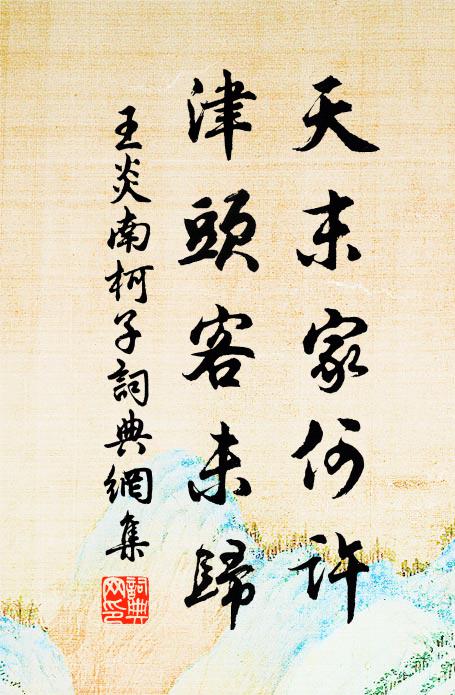 天末家何許
津頭客未歸
王炎南柯子詞典網集